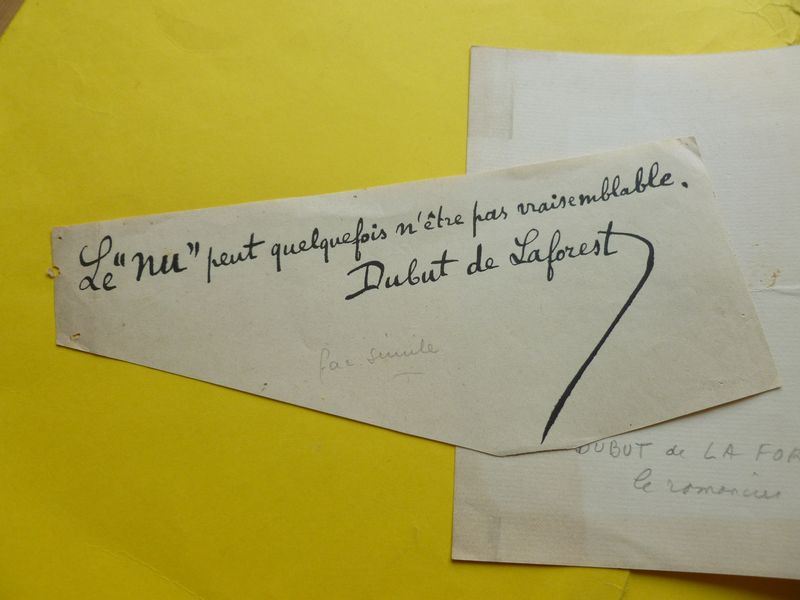 Le "nu" peut quelquefois n'être pas vraisemblable.
Dubut de Laforest
fac simile
DUBUT de LA FOR
le romancier